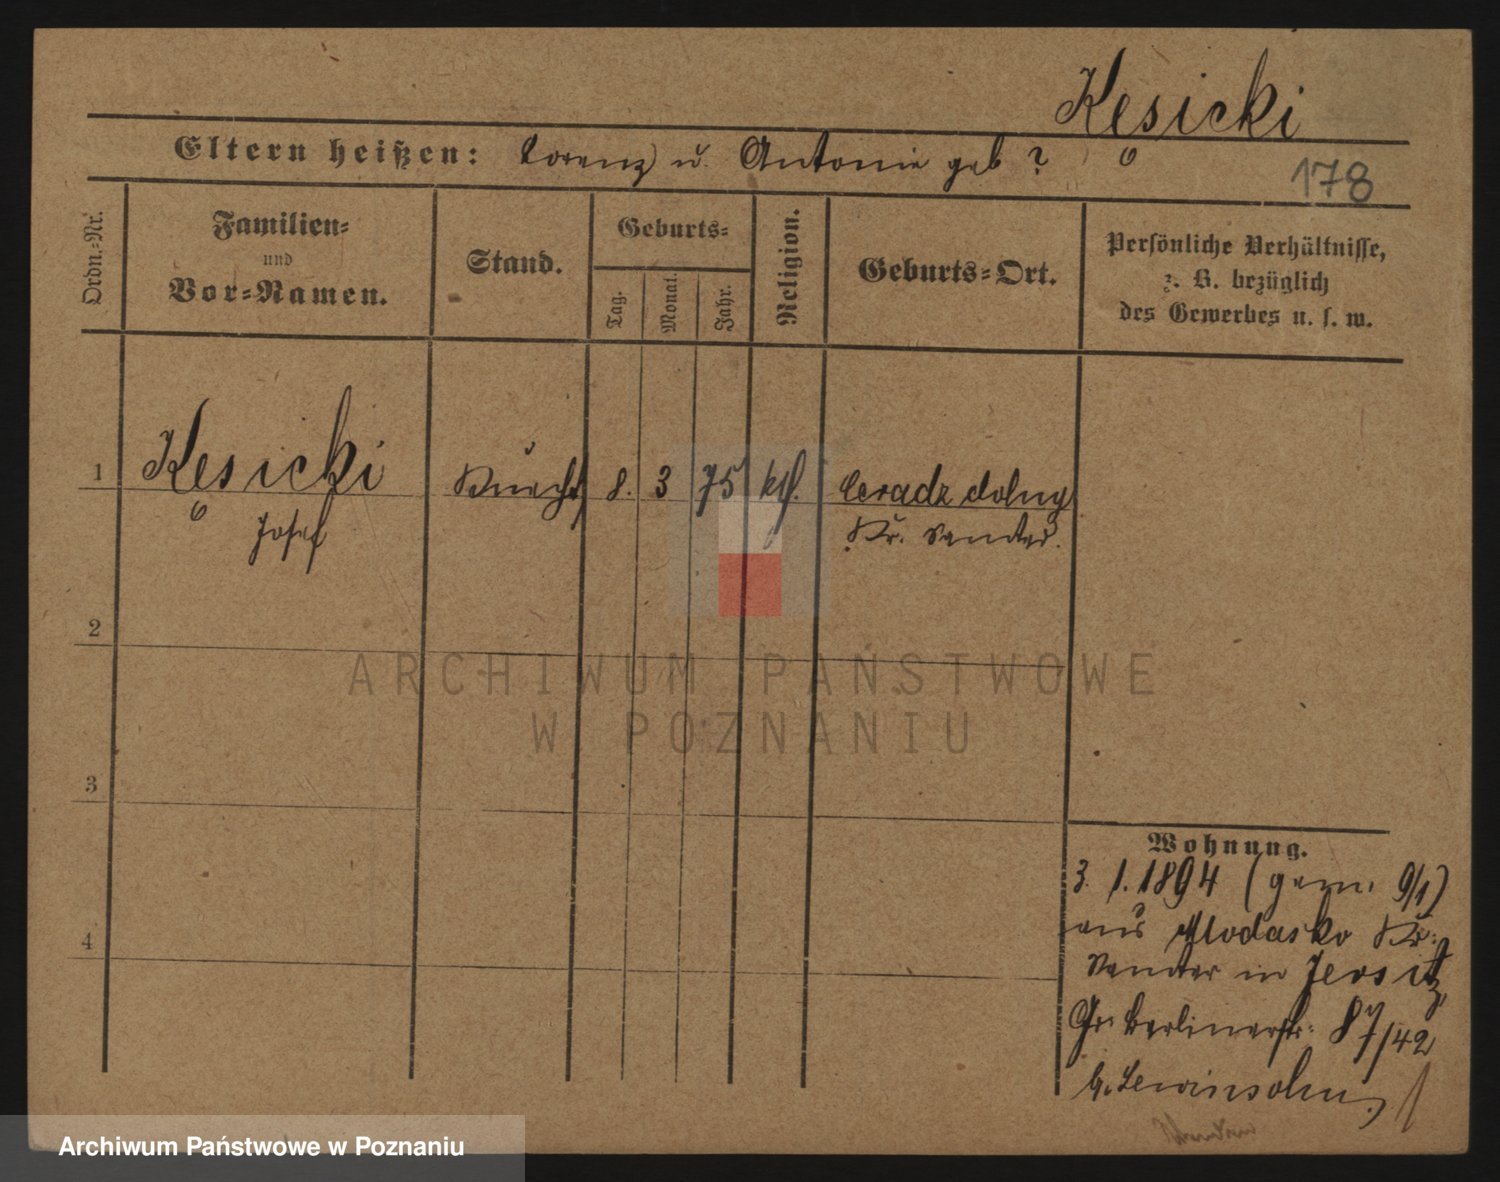 Kesicki
Eltern heißen: Lorenz u. Antonie geb ?
178
Ordn.-Nr.
Familien-
und
Vor-Namen.
Stand.
Geburts-
Tag.
Monat.
Jahr.
Religion.
Geburts-Ort.
Persönliche Verhältnisse,
z. B. bezüglich
des Gewerbes u. s. w.
1
Kesicki
Josef
Knecht
8.
3
75
ktl.
Ceradz dolny
Kr. Samter.
2
ARCHIWUM PAŃSTWOWE
W POZNANIU
3
4
Wohnung.
3. 1. 1894 (gem. 9/1)
aus Mlodasko Kr.
Samter in Jersitz
Gr. Berlinerstr. 87/42
b. Lewinsohn
Archiwum Państwowe w Poznaniu